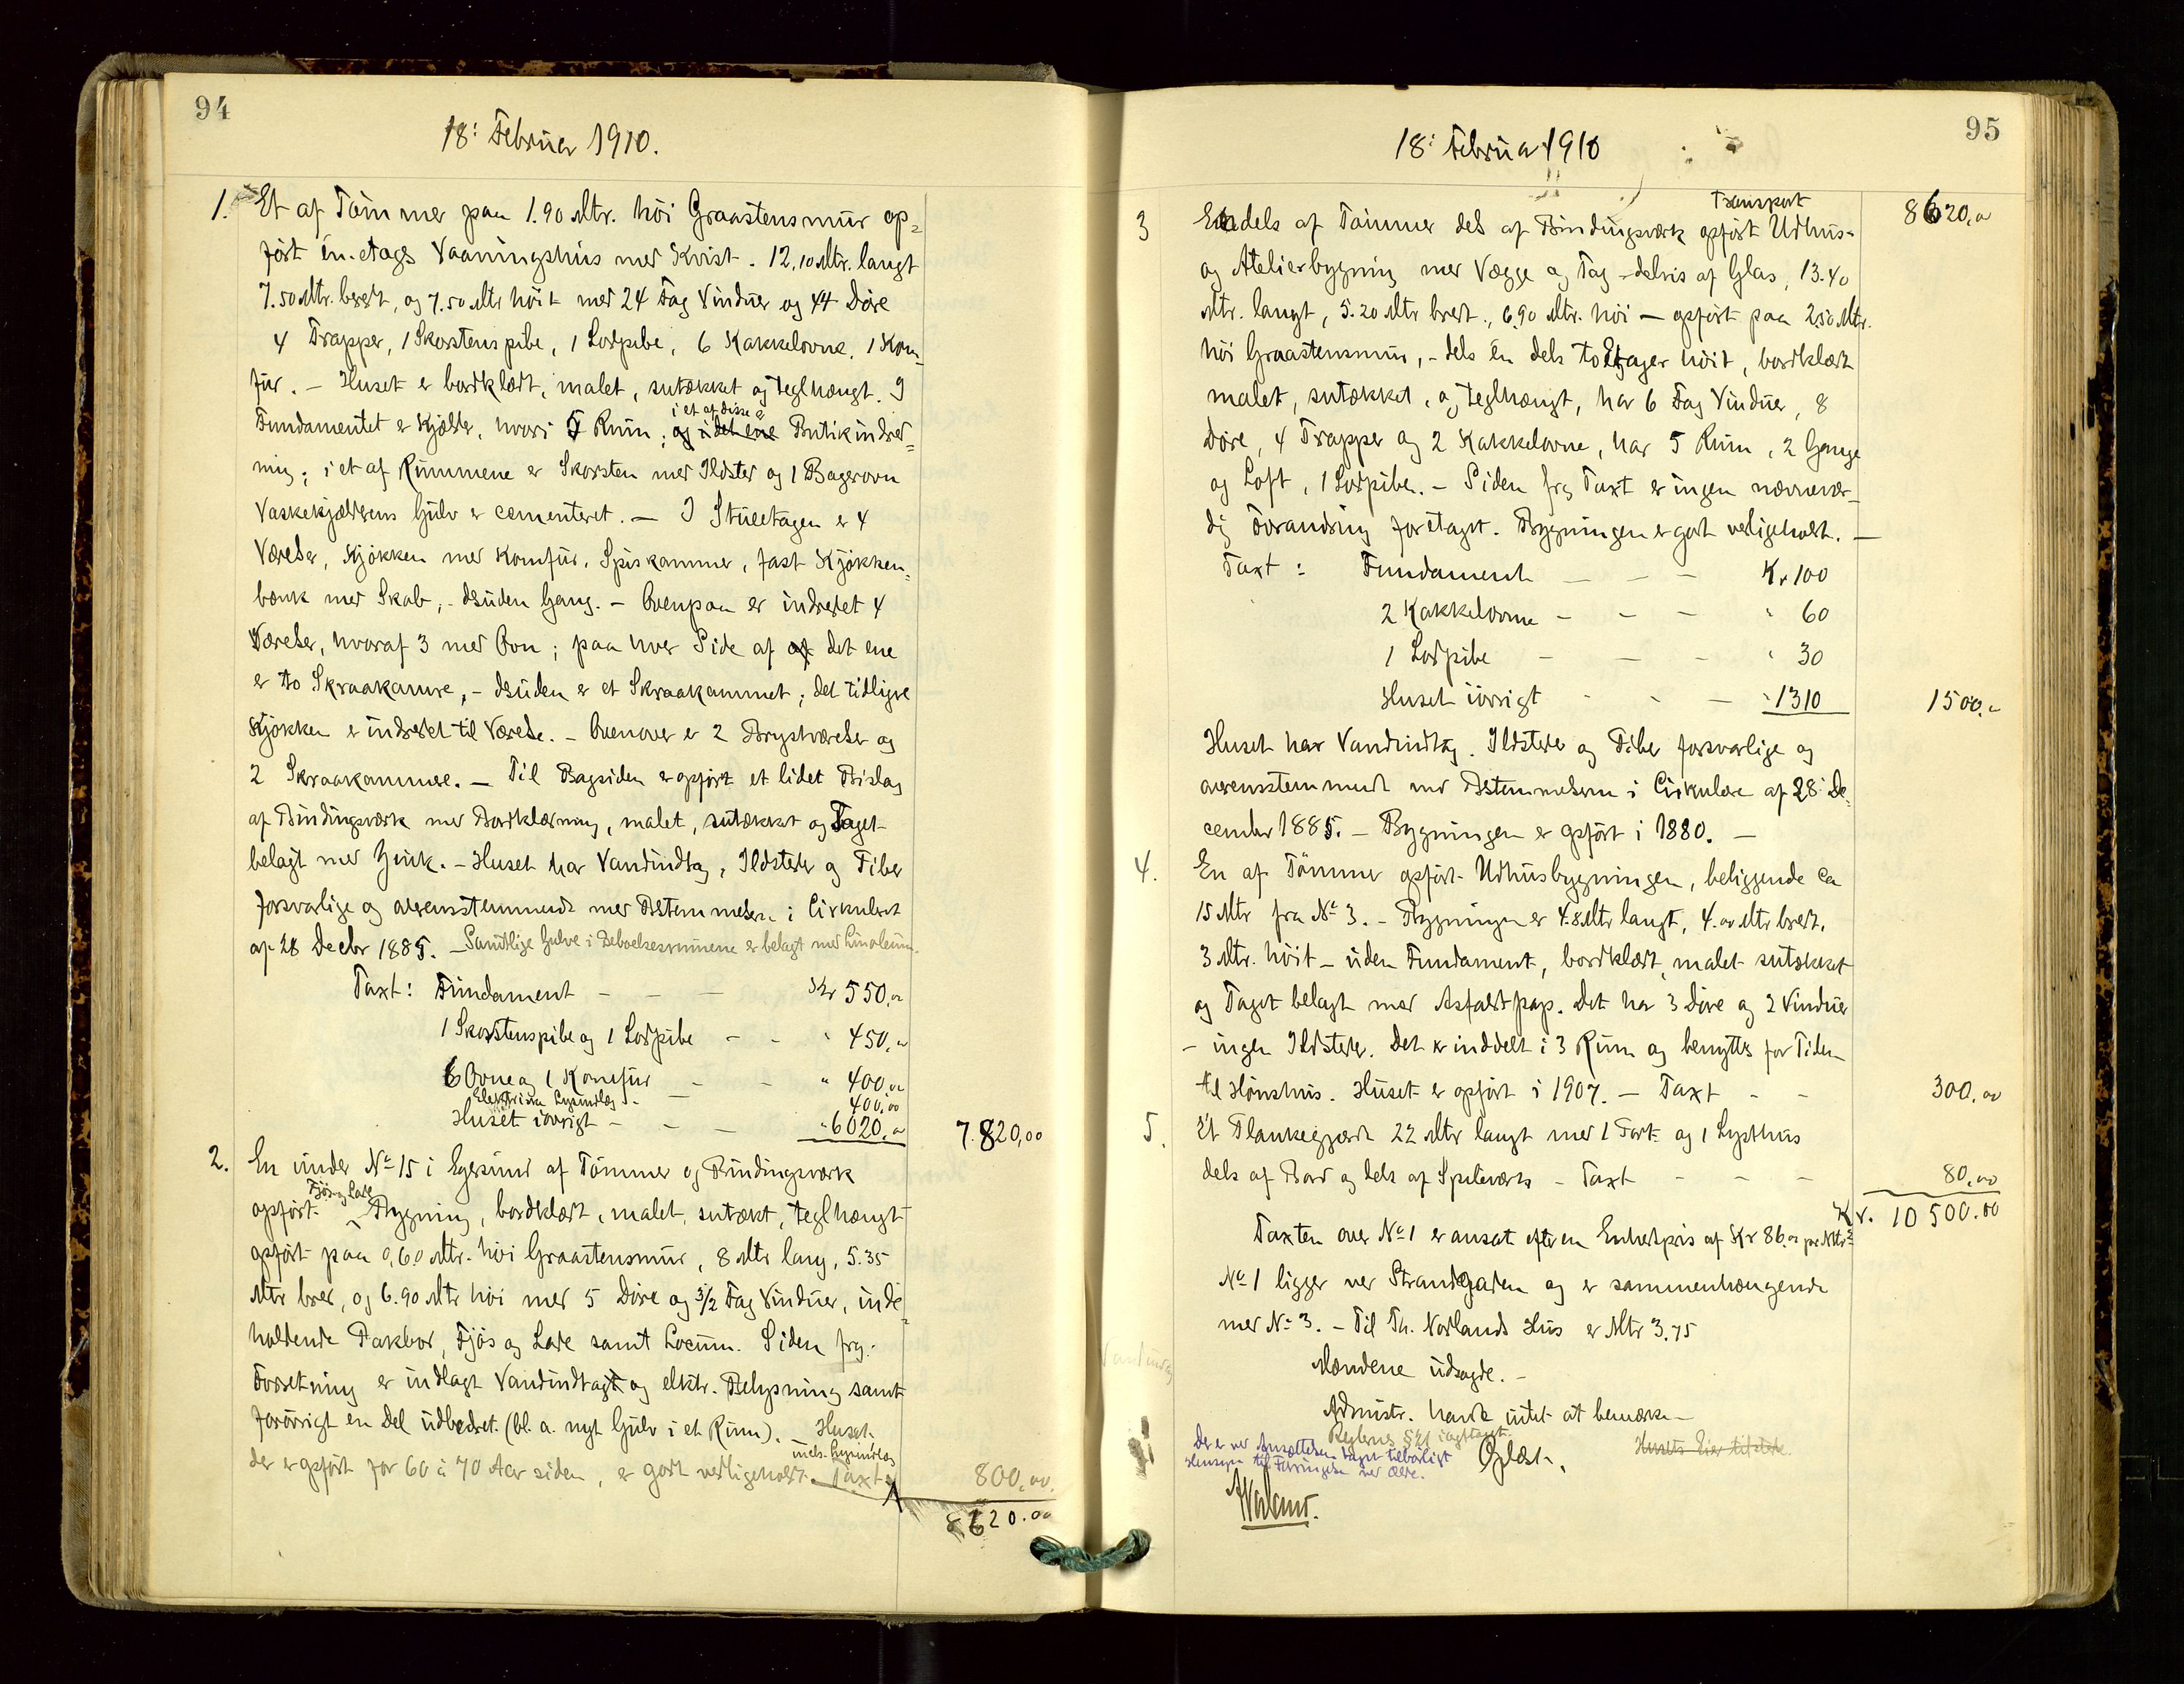 94
18: Februar 1910.
1. Et af Tömmer paa 1.90 Mtr. höi Graastensmur op=
fört én-etages Vaaningshus med Kvist. 12.10 Mtr. langt
7.50 Mtr. bredt, og 7.50 Mtr höit med 24 Fag Vinduer og 44 Döre
4 Trapper, 1 Skorstenspibe, 1 Lodpibe, 6 Kakkelovne, 1 Kom=
fur. — Huset er bordklædt, malet, sutækket og teglhængt. I
i et af disse er
Fundamentet er Kjælder, hvori 7 Rum; og i det ene Butikindred=
ning; i et af Rummene er Skorsten med Ildsted og 1 Bagerovn
Vaskekjælderens Gulv er cementeret. — I Stueetagen er 4
Værelser, Kjökken med Komfur, Spiskammer, fast Kjökken=
bænk med Skab, - desuden Gang. — Ovenpaa er indredet 4
Værelser, hvoraf 3 med Ovn; paa hver Side af af det ene
er to Skraakamre, - desuden er et Skraakammer; det tidligere
Kjökken er indredet til Værelse. — Ovenover er 2 Brystværelser og
2 Skraakammere. — Til Bagsiden er opfört et lidet Bislag
af Bindingsværk med Bordklædning, malet, sutækket og Taget
belagt med Zink. — Huset har Vandindlæg, Ildsteder og Piber
forsvarlige og overensstemmende med Bestemmelserne i Cirkulæret
af 28 Decbr 1885. — Samtlige Gulve i Beboelsesrummene er belagt med Linoleum.
Taxt: Fundament — — — Kr 550,00
1 Skorstenspibe og 1 Lodpibe - - " 450,00
6 Ovne og 1 Komfur - - " 400,00
Elektriske Lysindlæg - — 400,00
Huset iövrigt - - - " 6020,00 7.820,00
2. En under No 15 i Egersund af Tömmer og Bindingsværk
Fjös og Lade
opfört Bygning, bordklædt, malet, sutækt, teglhængt
opfört paa 0,60 Mtr. höi Graastensmur, 8 Mtr lang, 5.35
Mtr bred, og 6.90 Mtr höi med 5 Döre og 3/2 Fag Vinduer, inde=
holdende Pakbod, Fjös og Lade samt Locum. Siden frg.
Forretning er indlagt Vandindlæg og elktr. Belysning samt
forövrigt en Del udbedret. (bl. a. nyt Gulv i et Rum). — Huset
incls. Lysindlæg
der er opfört for 60 à 70 Aar siden, er godt vedligeholdt. Taxt 800,00
8620.00
95
18: Februar 1910
Transport 8620,00
3 En dels af Tömmer dels af Bindingsværk opfört Udhus-
og Atelierbygning med Vægge og Tag - delvis af Glas, 13.40
Mtr. langt, 5.20 Mtr bredt, 6.90 Mtr. höi — opfört paa 2.50 Mtr.
höi Graastensmur, - dels én dels to Etager höit, bordklædt
malet, sutækket, og teglhængt, har 6 Fag Vinduer, 8
Döre, 4 Trapper og 2 Kakkelovne, har 5 Rum, 2 Gange
og Loft, 1 Lodpibe. — Siden frg Taxt er ingen nævnevær=
dig Forandring foretaget. Bygningen er godt vedligeholdt. —
Taxt: Fundament — — — Kr 100
2 Kakkelovne - - - " 60
1 Lodpibe - - - " 30
Huset iövrigt - - - " 1310 1500,00
Huset har Vandindlæg. Ildsteder og Piber forsvarlige og
overensstemmende med Bestemmelserne i Cirkulære af 28: De=
cember 1885. — Bygningen er opfört i 1880. —
4. En af Tömmer opfört Udhusbygningen, beliggende ca
15 Mtr fra No 3. — Bygningen er 4.8 Mtr langt, 4.00 Mtr bredt,
3 Mtr. höit — uden Fundament, bordklædt, malet sutækket
og Taget belagt med Asfaltpap. Det har 3 Döre og 2 Vinduer
- ingen Ildsteder. Det er inddelt i 3 Rum og benyttes for Tiden
til Hönshus. Huset er opfört i 1907. — Taxt - - 300,00
5. Et Plankegjærde 22 Mtr langt med 1 Port og 1 Lysthus
dels af Bord og dels af Spileværk - Taxt - - - 80,00
Kr. 10 500.00
Taxten over No 1 er ansat efter en Enhetspris af Kr 86.00 pr Mtr2
No 1 ligger ved Strandgaden og er sammenhængende
med No 3. — Til Th. Norlands Hus er Mtr 3.75
Mændene udsagde. —
Administr. havde intet at bemærke —
Reglernes § 21 iagttaget
Der er ved Ansættelsen taget tilbörligt
Hensyn til Forringelse ved Ælde.
Oplæst.
Husets Eier tilstede.